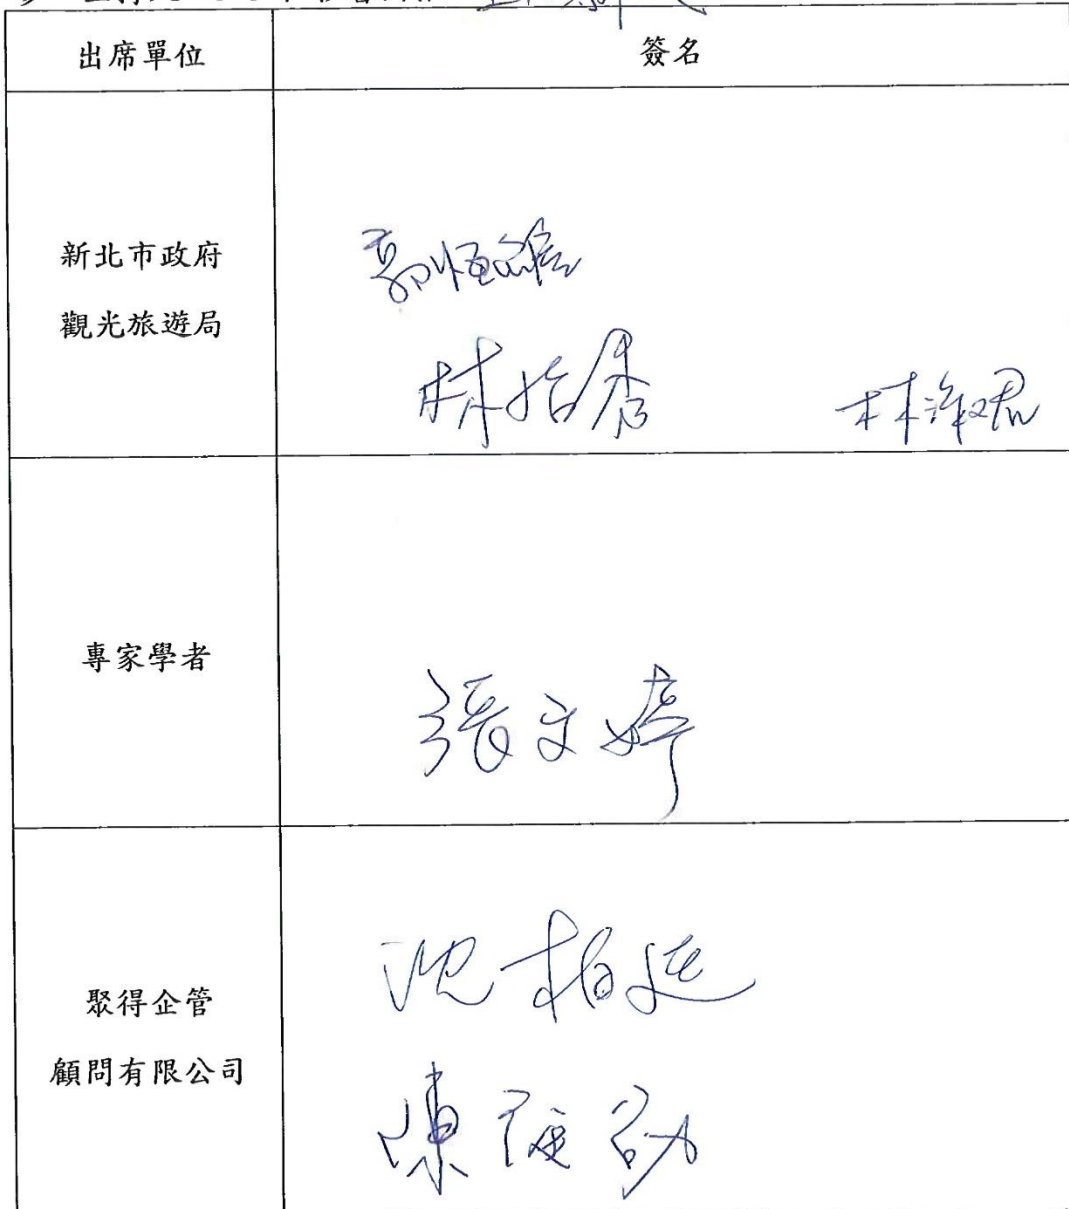 出席單位
簽名
新北市政府
觀光旅遊局
林怡秀
林淑君
專家學者
張文婷
聚得企管
顧問有限公司
沈柏延